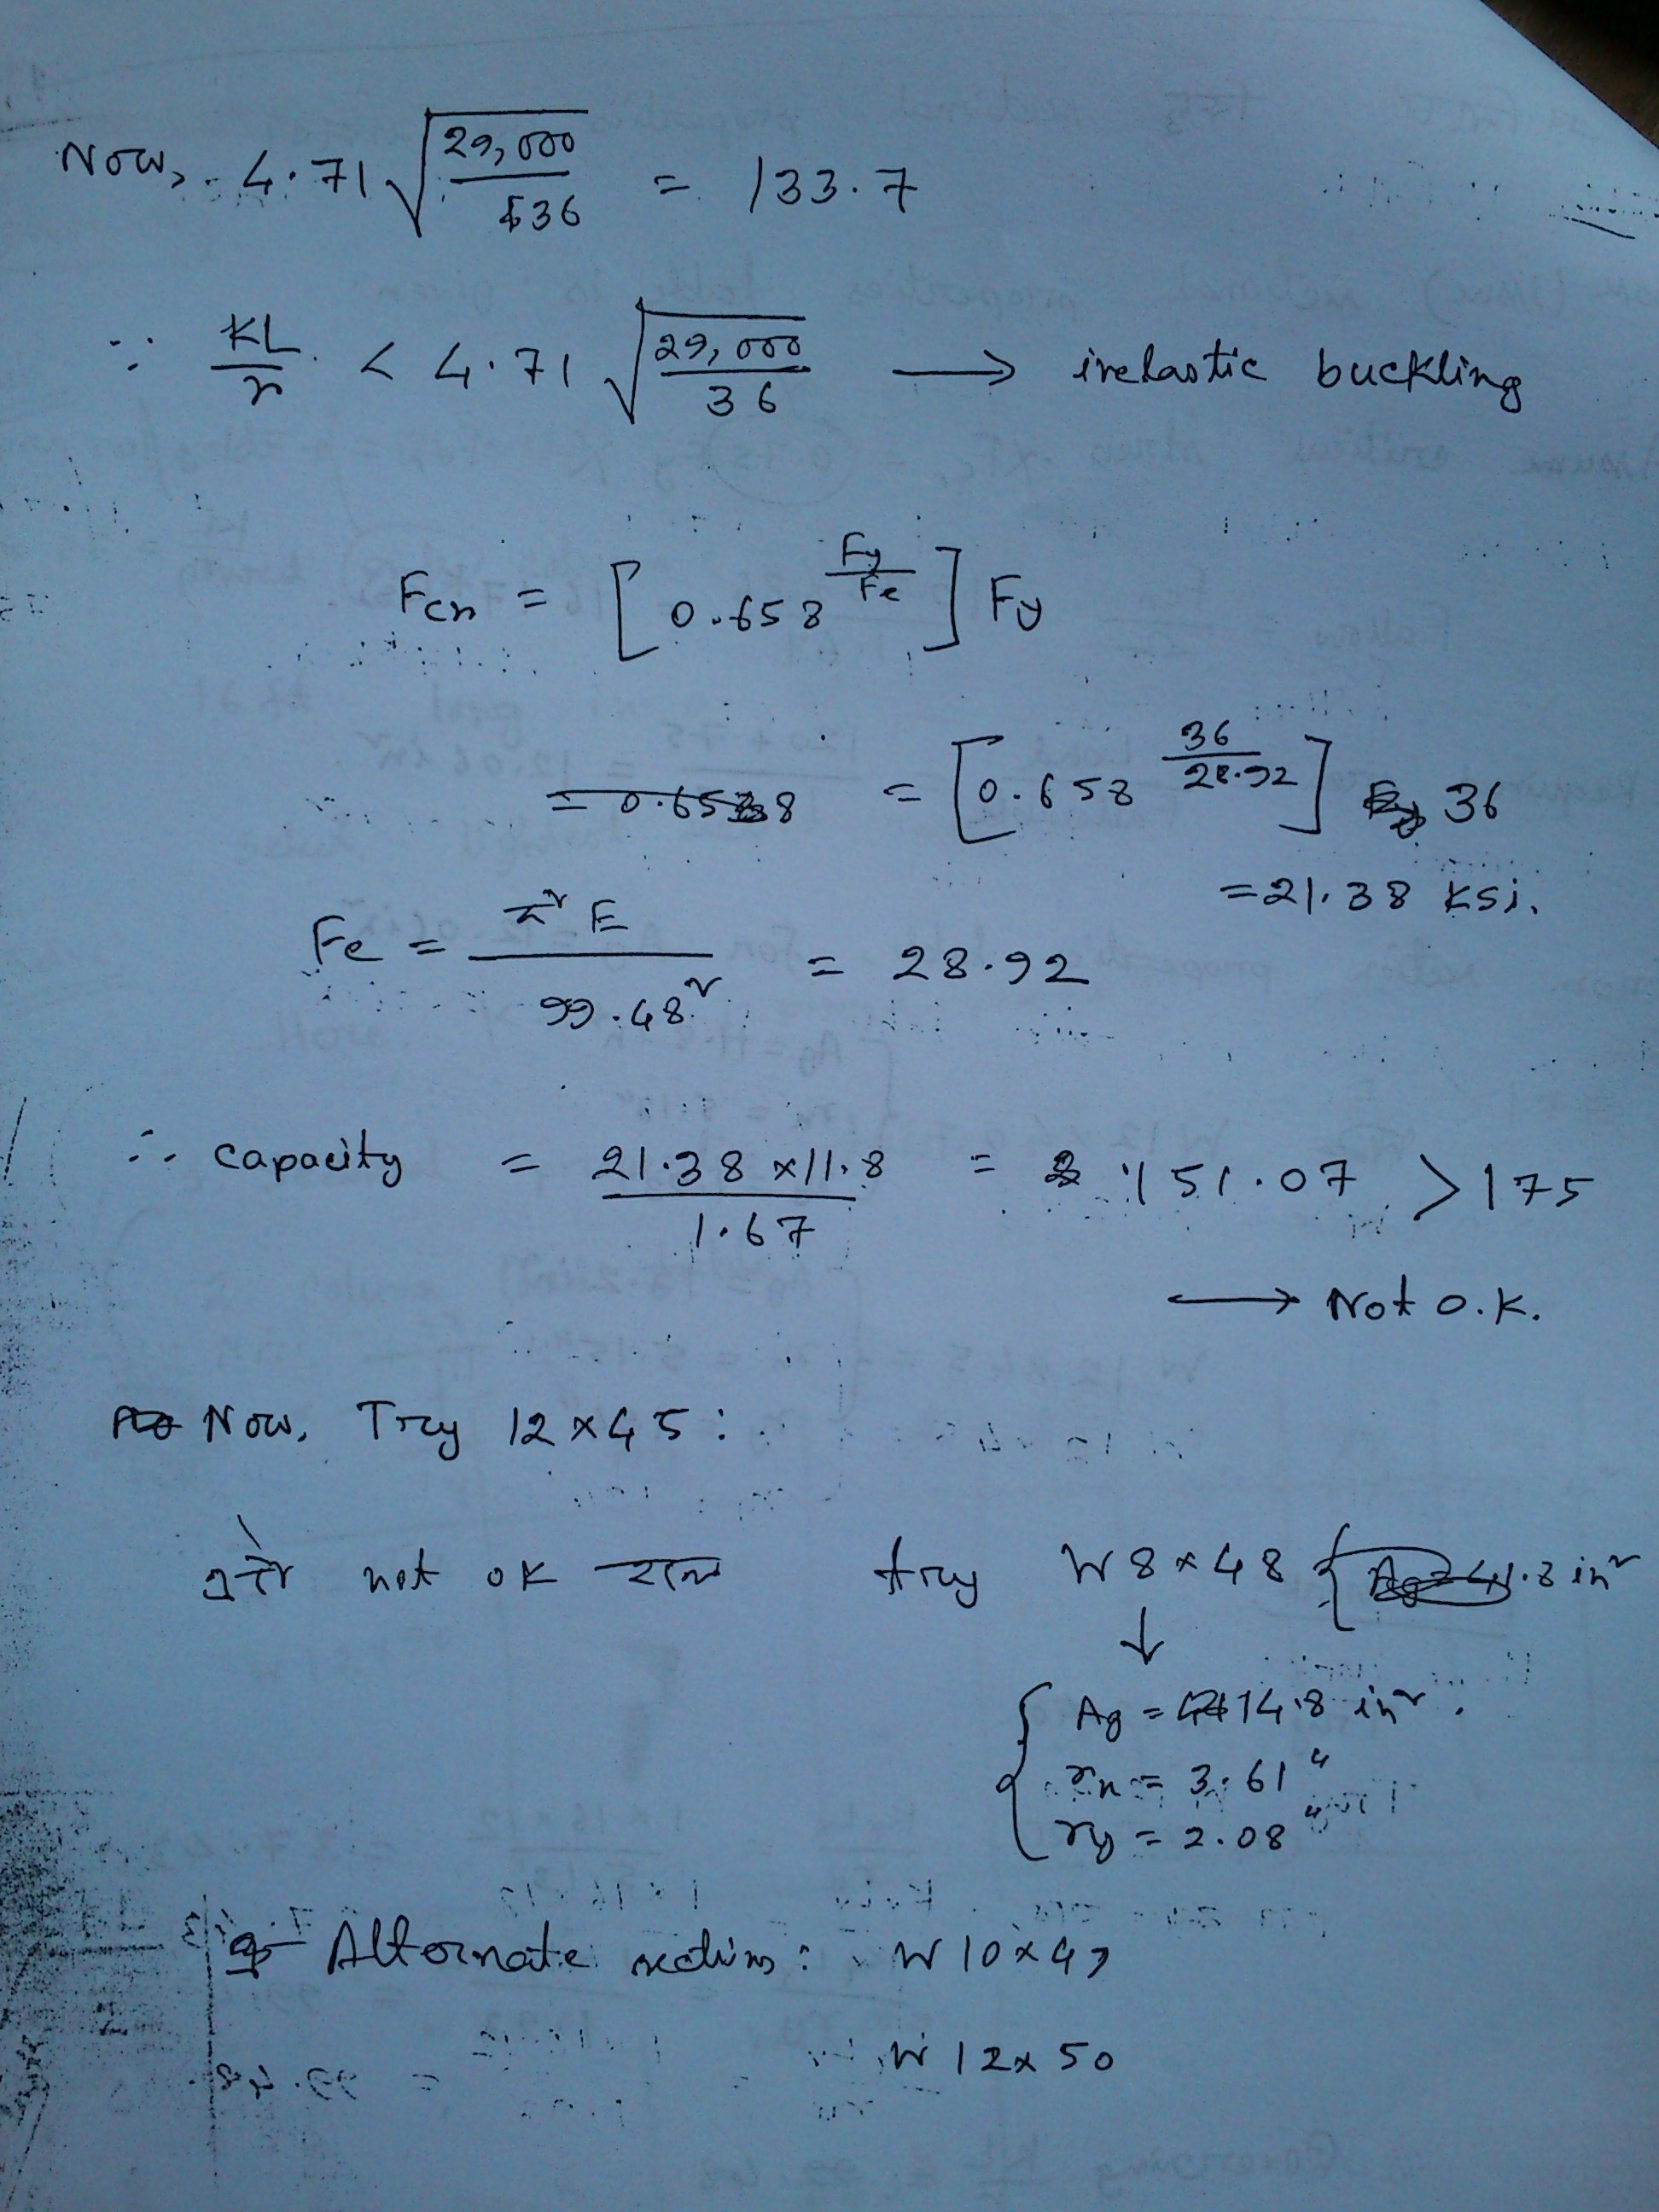 Now, 4.71 √(29,000 / 36) = 133.7
∵ KL/r < 4.71 √(29,000 / 36) → inelastic buckling
Fcr = [0.658^(Fy/Fe)] Fy
= 0.658 = [0.658^(36/28.92)] 36
= 21.38 ksi.
Fe = π² E / 99.48² = 28.92
∴ capacity = 21.38 x 11.8 / 1.67 = 151.07 > 175
→ Not O.K.
Now, Try 12 x 45:
এটা not ok হলে try W 8 x 48 {
↓
{ Ag = 14.8 in².
rx = 3.61"
ry = 2.08"
Alternate sections: W 10 x 49
W 12 x 50